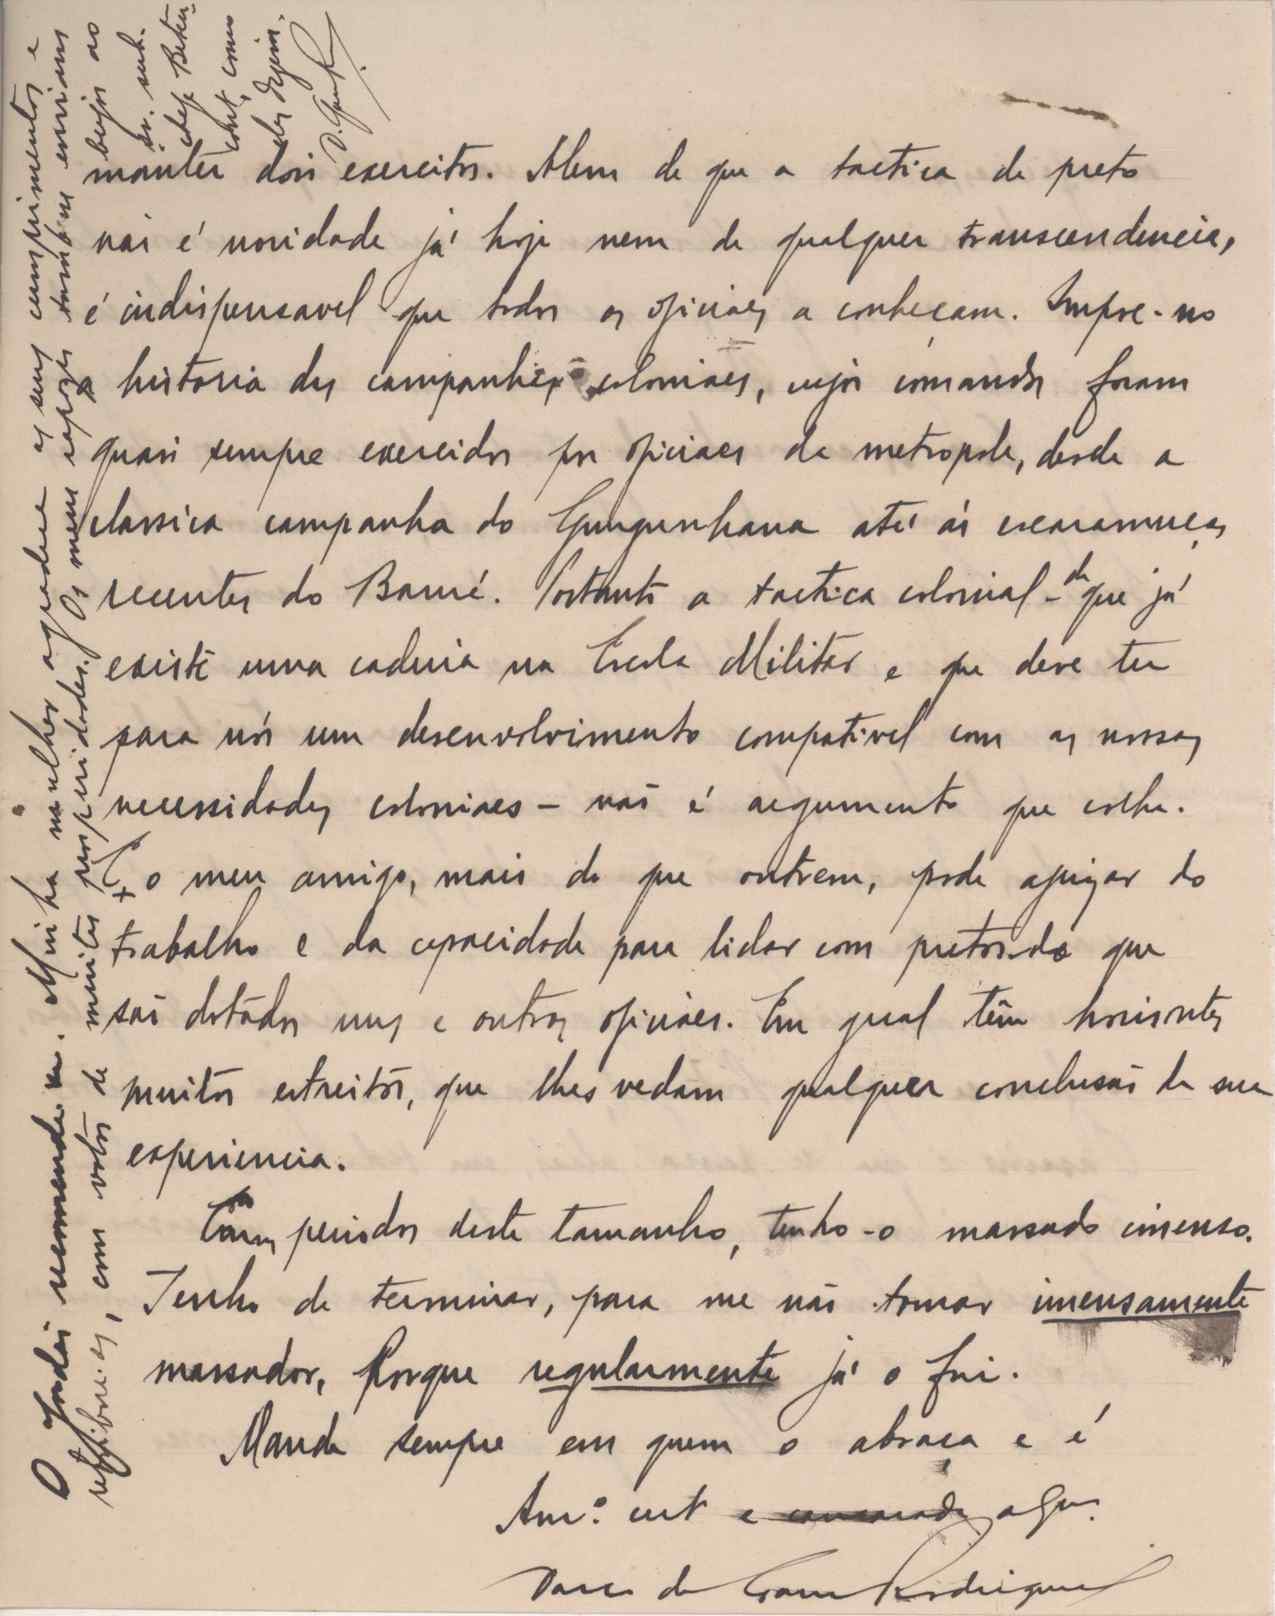 manter dois exercitos. Alem de que a tactica de preto
não é novidade já hoje nem de qualquer transcendencia,
é indispensavel que todos os oficiaes a conheçam. Impõe-no
a historia das campanhas coloniaes, cujos comandos foram
quasi sempre exercidos por oficiaes da metropole, desde a
classica campanha do Gungunhana até ás escaramuças
recentes do Barué. Portanto a tactica colonial - de que já
existe uma cadeira na Escola Militar e que deve ter
para nós um desenvolvimento compativel com as nossas
necessidades coloniaes - não é argumento que colhe.
E o meu amigo, mais do que outrem, pode ajuizar do
trabalho e da capacidade para lidar com pretos de que
são dotados uns e outros oficiaes. Em geral têm horisontes
muitos estreitos, que lhes vedam qualquer conclusão da sua
experiencia.
Com periodos deste tamanho, tenho-o massado imenso.
Tenho de terminar, para me não tornar imensamente
massador, Porque regularmente já o fui.
Mande sempre em quem o abraça e é
Am.º cert e camarada
Rodrigues
O Jordão recomenda-se. Minha mulher agradece os seus cumprimentos e
retribue-os, com votos de muitas prosperidades. Os meus rapazes tambem enviam
beijos ao
sr. sub.
chefe
como
eles dizem.